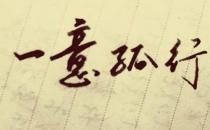 一意孤行